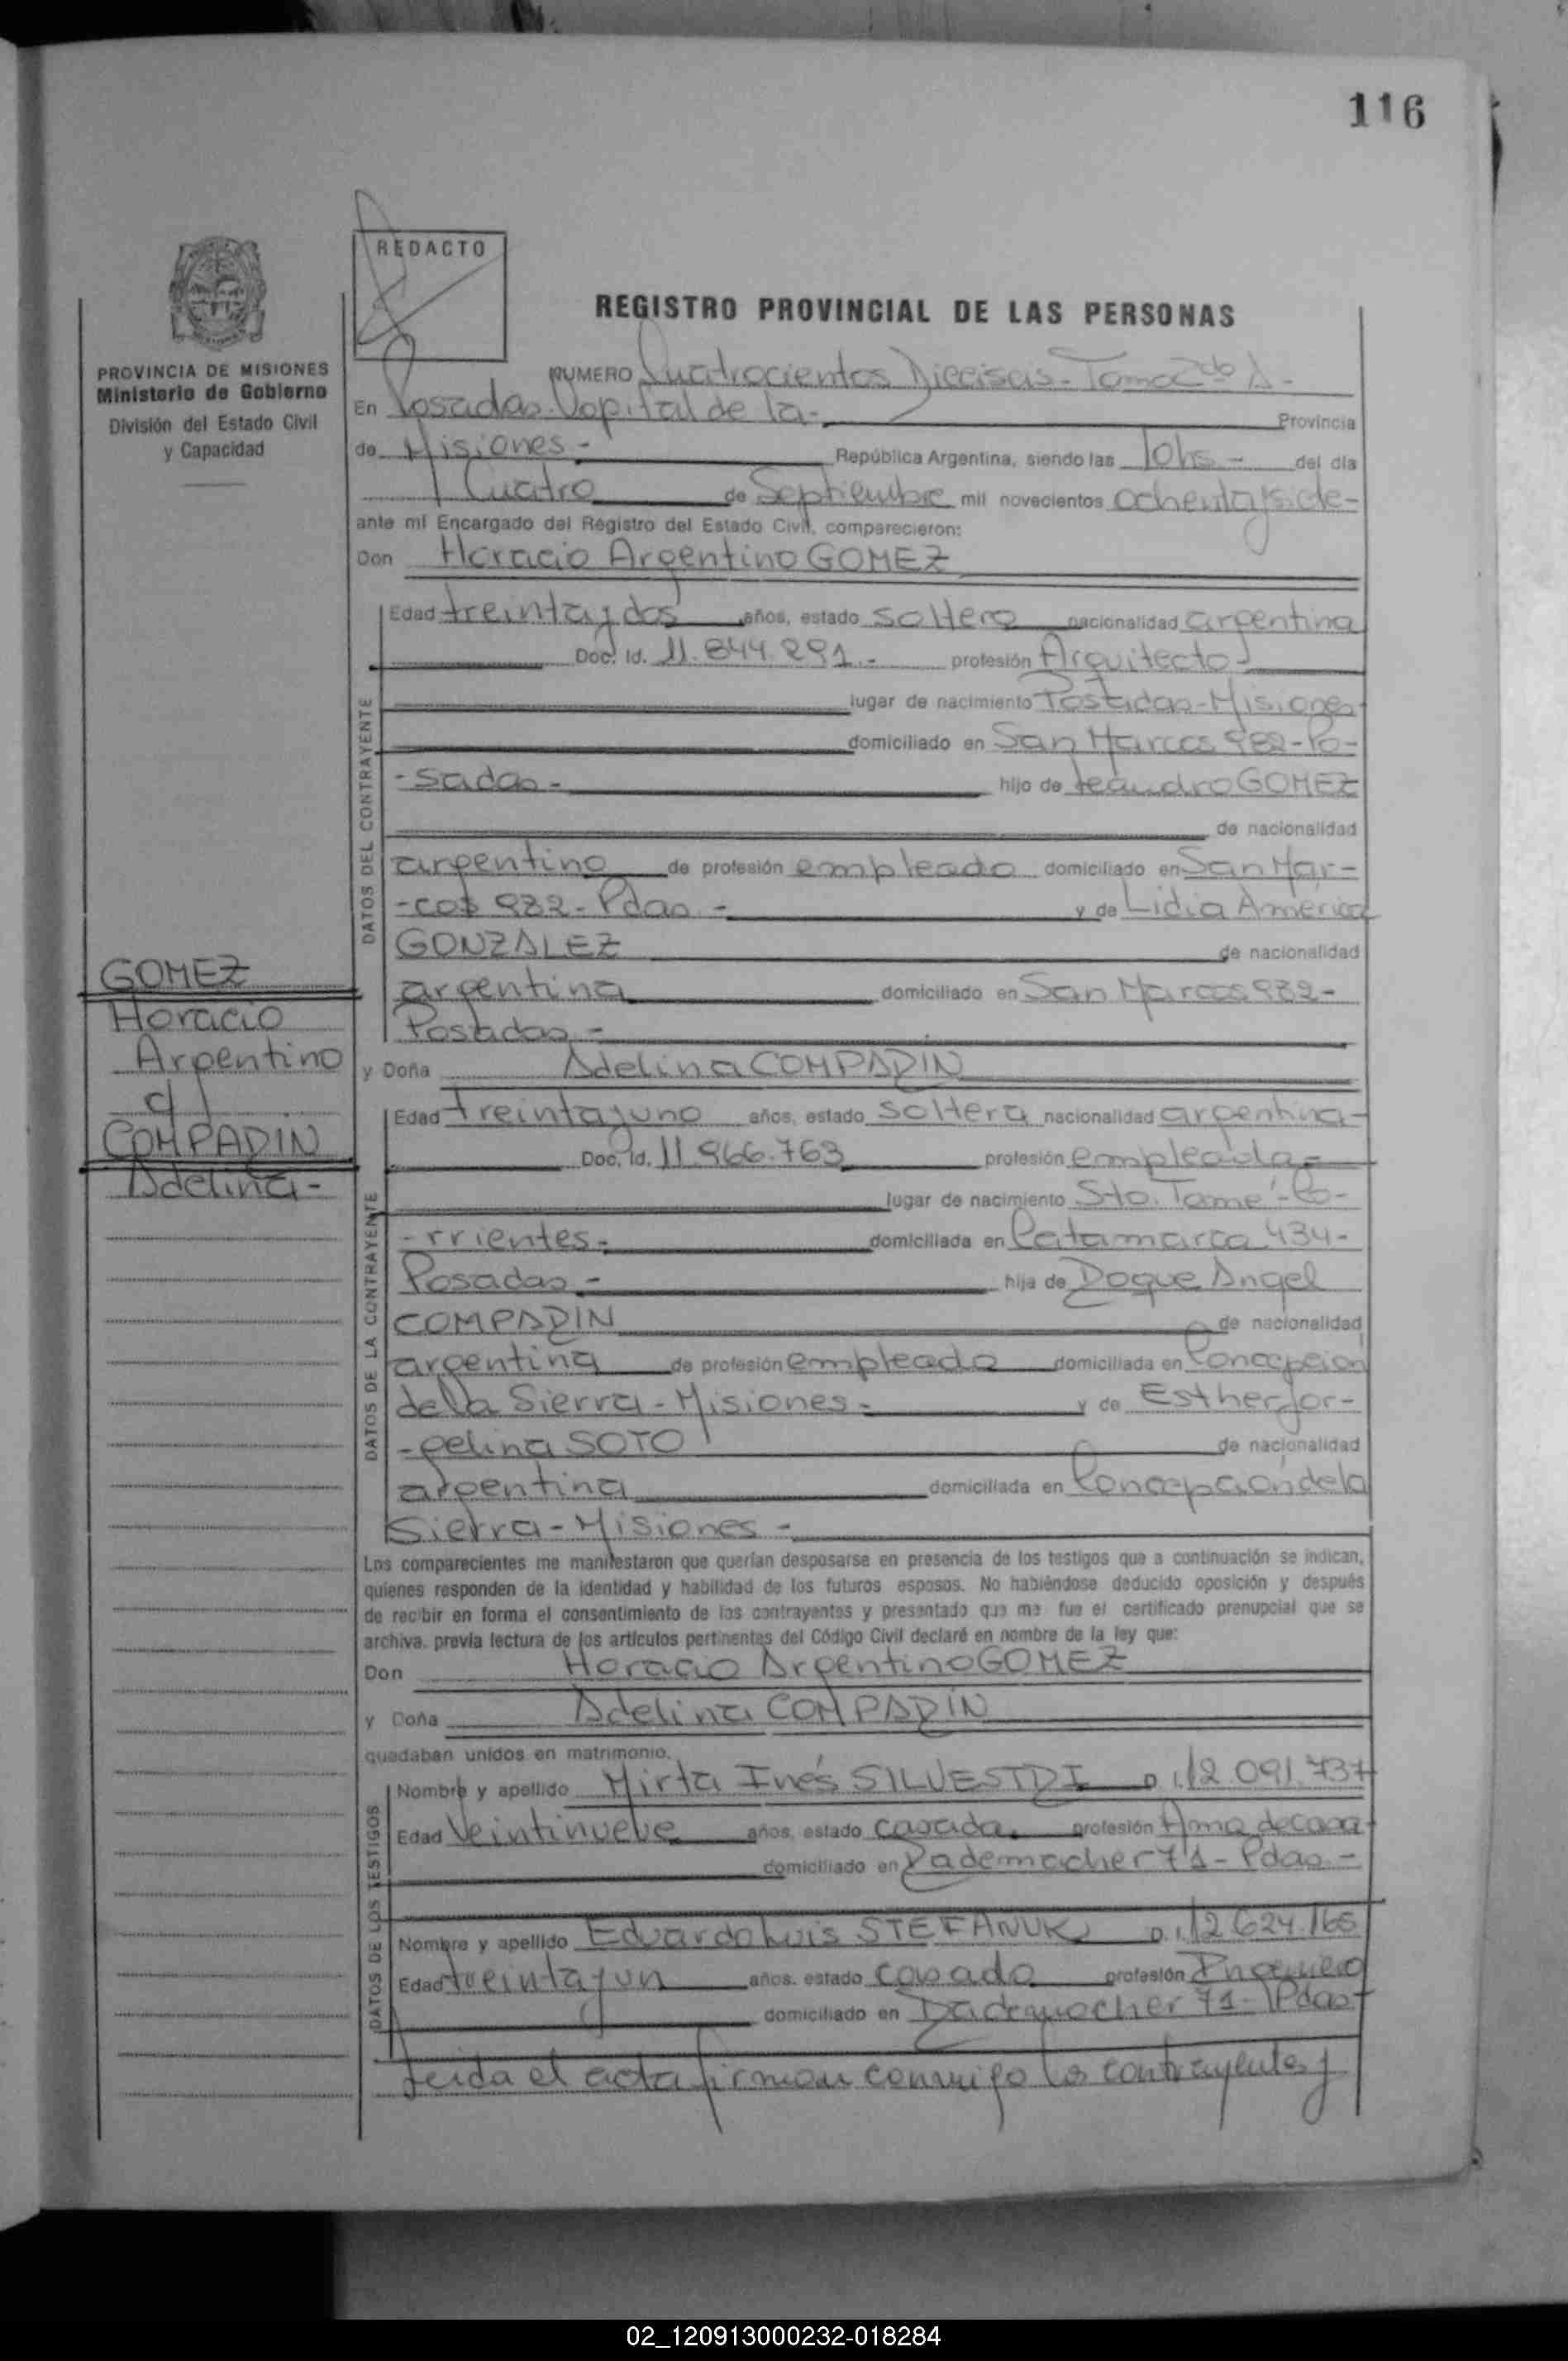 116
REDACTO
REGISTRO PROVINCIAL DE LAS PERSONAS
PROVINCIA DE MISIONES
Ministerio de Gobierno
División del Estado Civil
y Capacidad
NUMERO Cuatrocientos Dieciseis - Tomo 2do A -
En Posadas Capital de la - Provincia
de Misiones - República Argentina, siendo las 10hs - del día
Cuatro de Septiembre mil novecientos ochenta y siete -
ante mí Encargado del Registro del Estado Civil, comparecieron:
Don Horacio Argentino GOMEZ
Edad treinta y dos años, estado soltero nacionalidad argentina
Doc. Id. 11.844.291 - profesión Arquitecto
lugar de nacimiento Posadas - Misiones
domiciliado en San Marcos 982 - Po -
- sadas - hijo de Leandro GOMEZ
de nacionalidad
argentino de profesión empleado domiciliado en San Mar -
- cos 982 - Pdas - y de Lidia America
GONZALEZ de nacionalidad
argentina domiciliado en San Marcos 982 -
Posadas -
y Doña Adelina COMPARIN
Edad treinta y uno años, estado soltera nacionalidad argentina -
Doc. Id. 11.966.763 profesión empleada -
lugar de nacimiento Sto. Tomé - Co -
- rrientes - domiciliada en Catamarca 434 -
Posadas - hija de Roque Angel
COMPARIN de nacionalidad
argentina de profesión empleado domiciliada en Concepción
de la Sierra - Misiones - y de Esther Jor -
- gelina SOTO de nacionalidad
argentina domiciliada en Concepción de la
Sierra - Misiones -
DATOS DEL CONTRAYENTE
DATOS DE LA CONTRAYENTE
GOMEZ
Horacio
Argentino
c/
COMPARIN
Adelina -
Los comparecientes me manifestaron que querían desposarse en presencia de los testigos que a continuación se indican,
quienes responden de la identidad y habilidad de los futuros esposos. No habiéndose deducido oposición y después
de recibir en forma el consentimiento de los contrayentes y presentado que me fue el certificado prenupcial que se
archiva, previa lectura de los artículos pertinentes del Código Civil declaré en nombre de la ley que:
Don Horacio Argentino GOMEZ
y Doña Adelina COMPARIN
quedaban unidos en matrimonio.
DATOS DE LOS TESTIGOS
Nombre y apellido Mirta Inés SILVESTRI D.I. 12.091.737
Edad Veintinueve años, estado casada profesión Ama de casa
domiciliado en Rademacher 71 - Pdas -
Nombre y apellido Eduardo Luis STEFANUK D.I. 12.624.165
Edad treinta y un años, estado casado profesión Ingeniero
domiciliado en Rademacher 71 - Pdas -
Leida el acta firman conmigo los contrayentes y
02_120913000232-018284